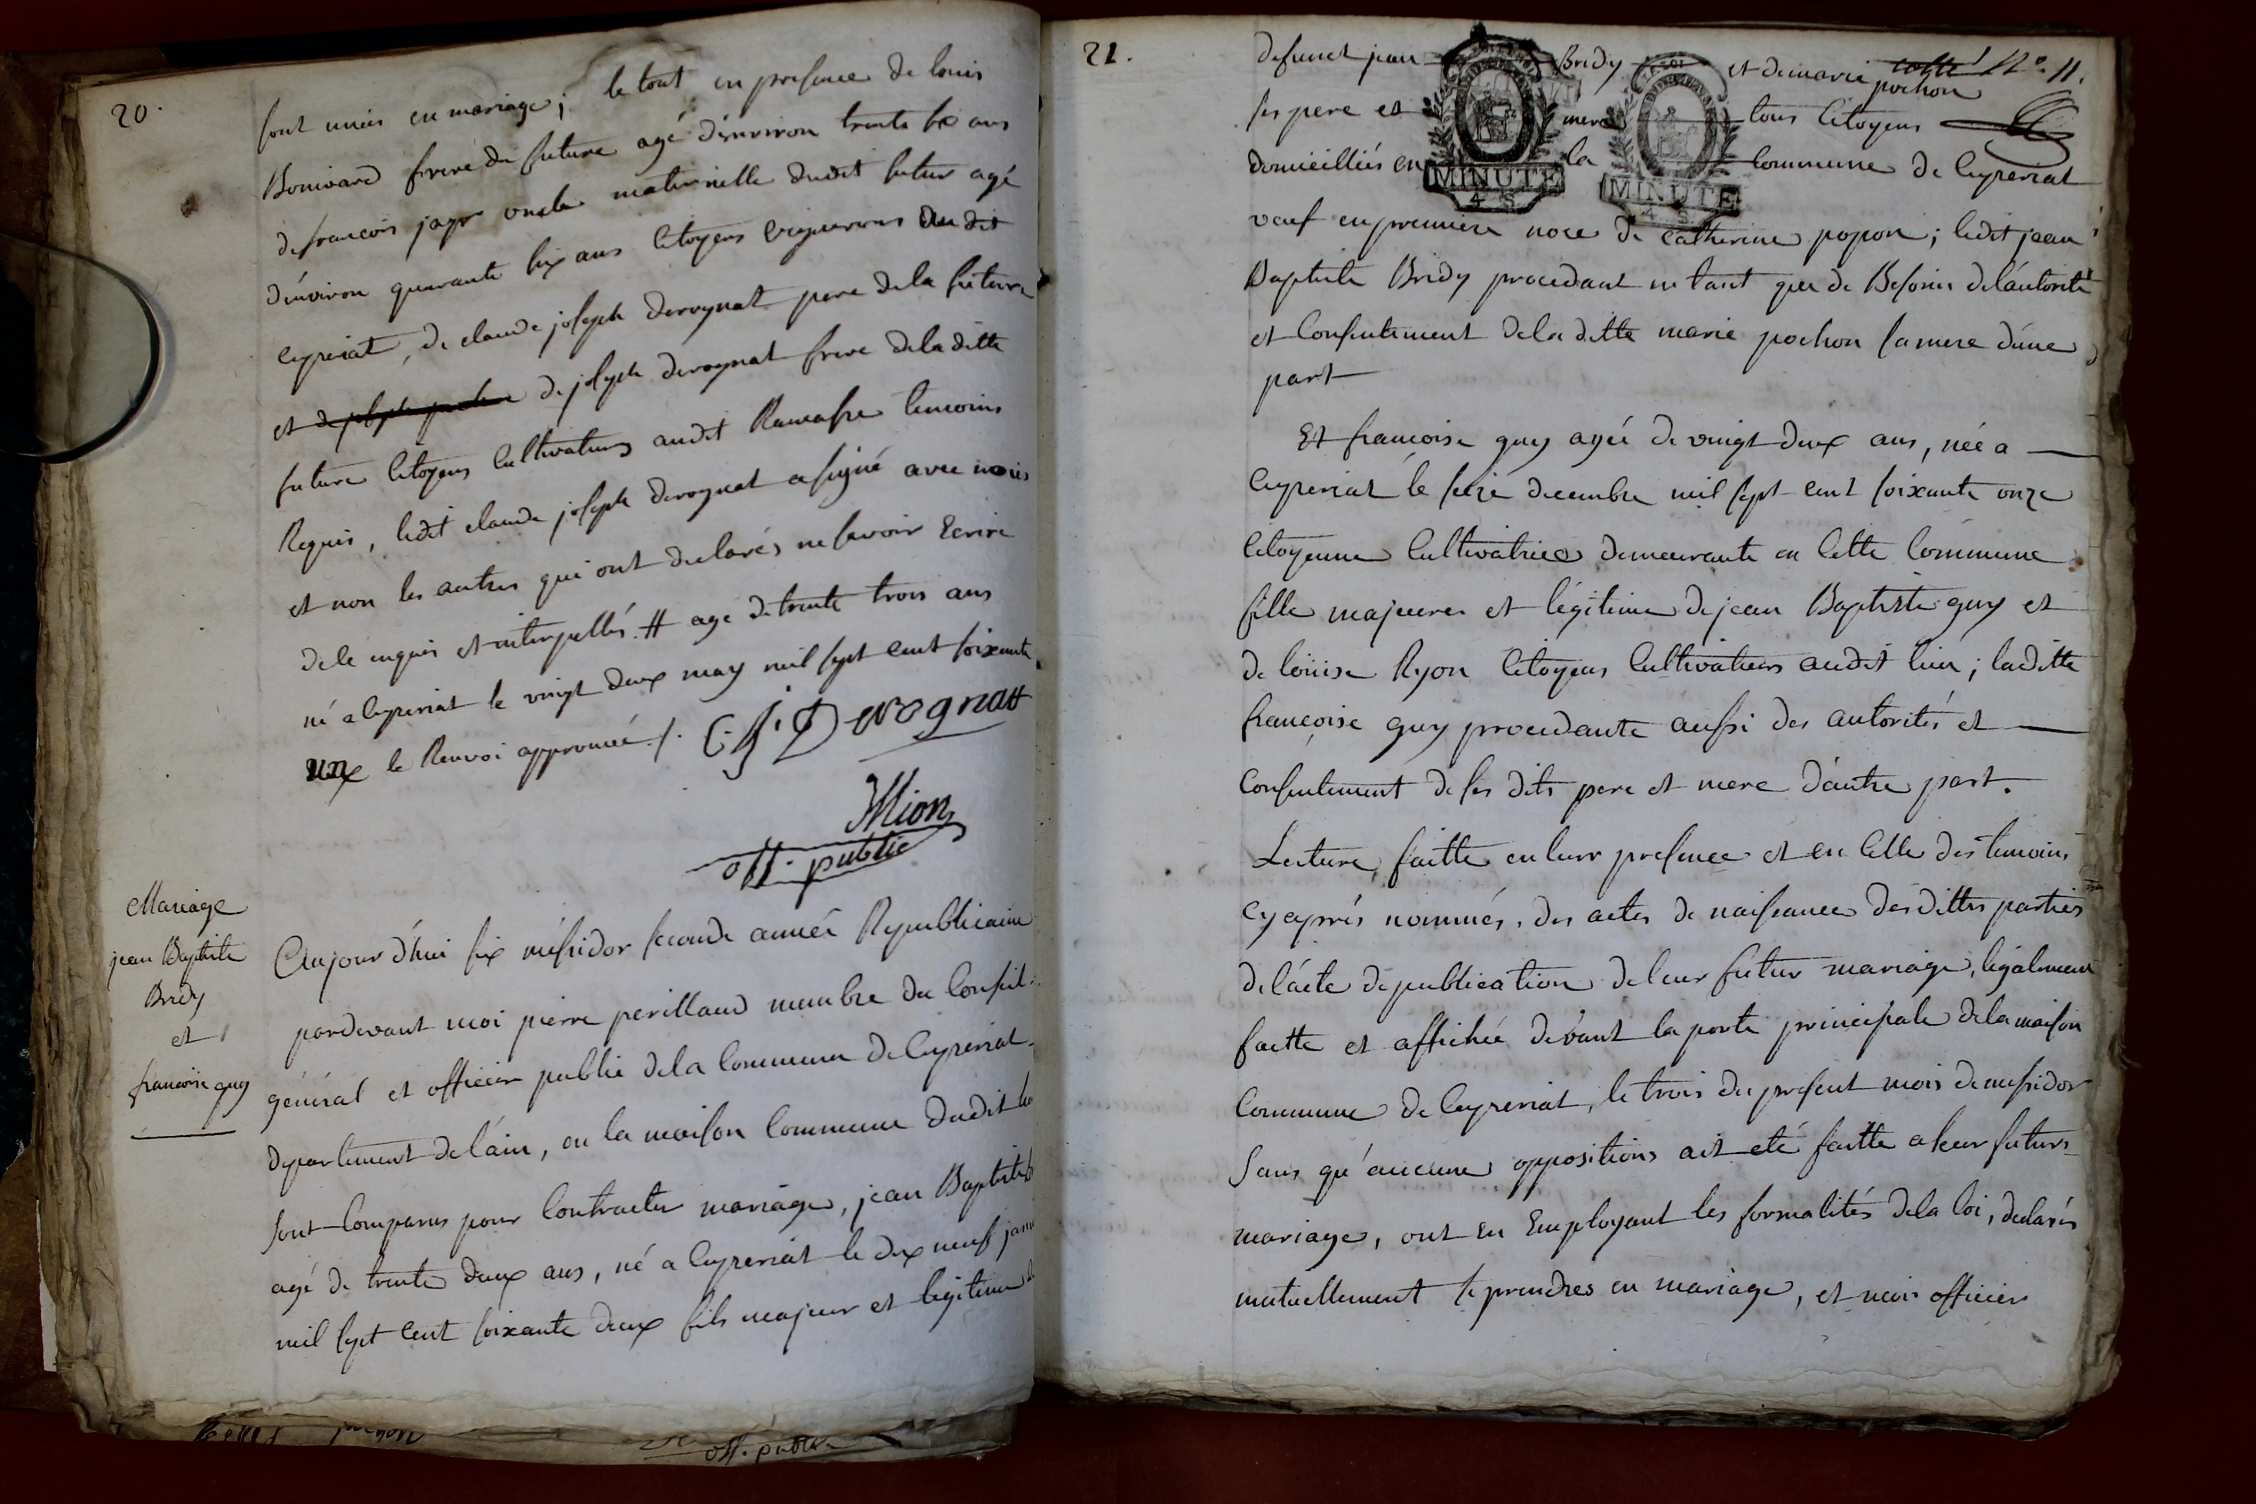 20.
sont unis en mariage; le tout en presence de louis
Bonivard frere du future agé d'environ trente six ans
de francois jayr oncle maternelle dudit futur agé
d'environ quarante six ans citoyens vignerons dudit
Ceyzeriat, de claude joseph derognat pere de la future
et de joseph derognat frere de la ditte
future Citoyens Cultivateurs audit Ramasse temoins
Requis, ledit claude joseph derognat a signé avec nous
et non les autres qui ont declarés ne savoir Ecrire
de le enquis et interpellés. # agé de trente trois ans
né a Ceyzeriat le vingt deux may mil sept cent soixante
un le Renvoi approuvé ./. C. J. Derognat
Mion
off. public
Mariage
jean Baptiste
Bridy
et
francoise guy
Aujourd'hui six messidor seconde année Republicaine
pardevant moi pierre perillaud membre du Conseil
général et officier public de la Commune de Ceyzeriat
departement de l'ain, en la maison Commune dudit lieu
sont Comparus pour Contracter mariage, jean Baptiste
agé de trente deux ans, né a Ceyzeriat le dix neuf janv
mil sept cent soixante deux fils majeur et legitime de
off. public
21.
defunct jean Bridy et de marie pochon
cotté N.° 11.
ses pere et mere tous Citoyens
domicilliés en la Commune de Ceyzeriat
MINUTE
4 S
MINUTE
4 S
veuf en premiere noce de Catherine popon; ledit jean
Baptiste Bridy procedant en tant que de Besoin de l'autorité
et Consentement de la ditte marie pochon sa mere d'une
part
Et francoise guy agée de vingt deux ans, née a
Ceyzeriat le seize decembre mil sept cent soixante onze
Citoyenne Cultivatrice demeurante en Cette Commune
fille majeure et légitime de jean Baptiste guy et
de loüise Ryon Citoyens Cultivateurs audit lieu; la ditte
francoise guy procedante aussi des autorités et
Consentement de ses dits pere et mere d'autre part.
Lecture faitte en leur presence et en Celle des temoins
cy aprés nommés, des actes de naissance desdittes parties
de l'acte de publication de leur futur mariage, légalement
faitte et affichée devant la porte principale de la maison
Commune de Ceyzeriat, le trois du present mois de messidor
sans qu'aucune oppositions ait eté faitte a leur futurs
mariage, ont en Employant les formalités de la loi, declarés
mutuellement se prendres en mariage, et moi officier